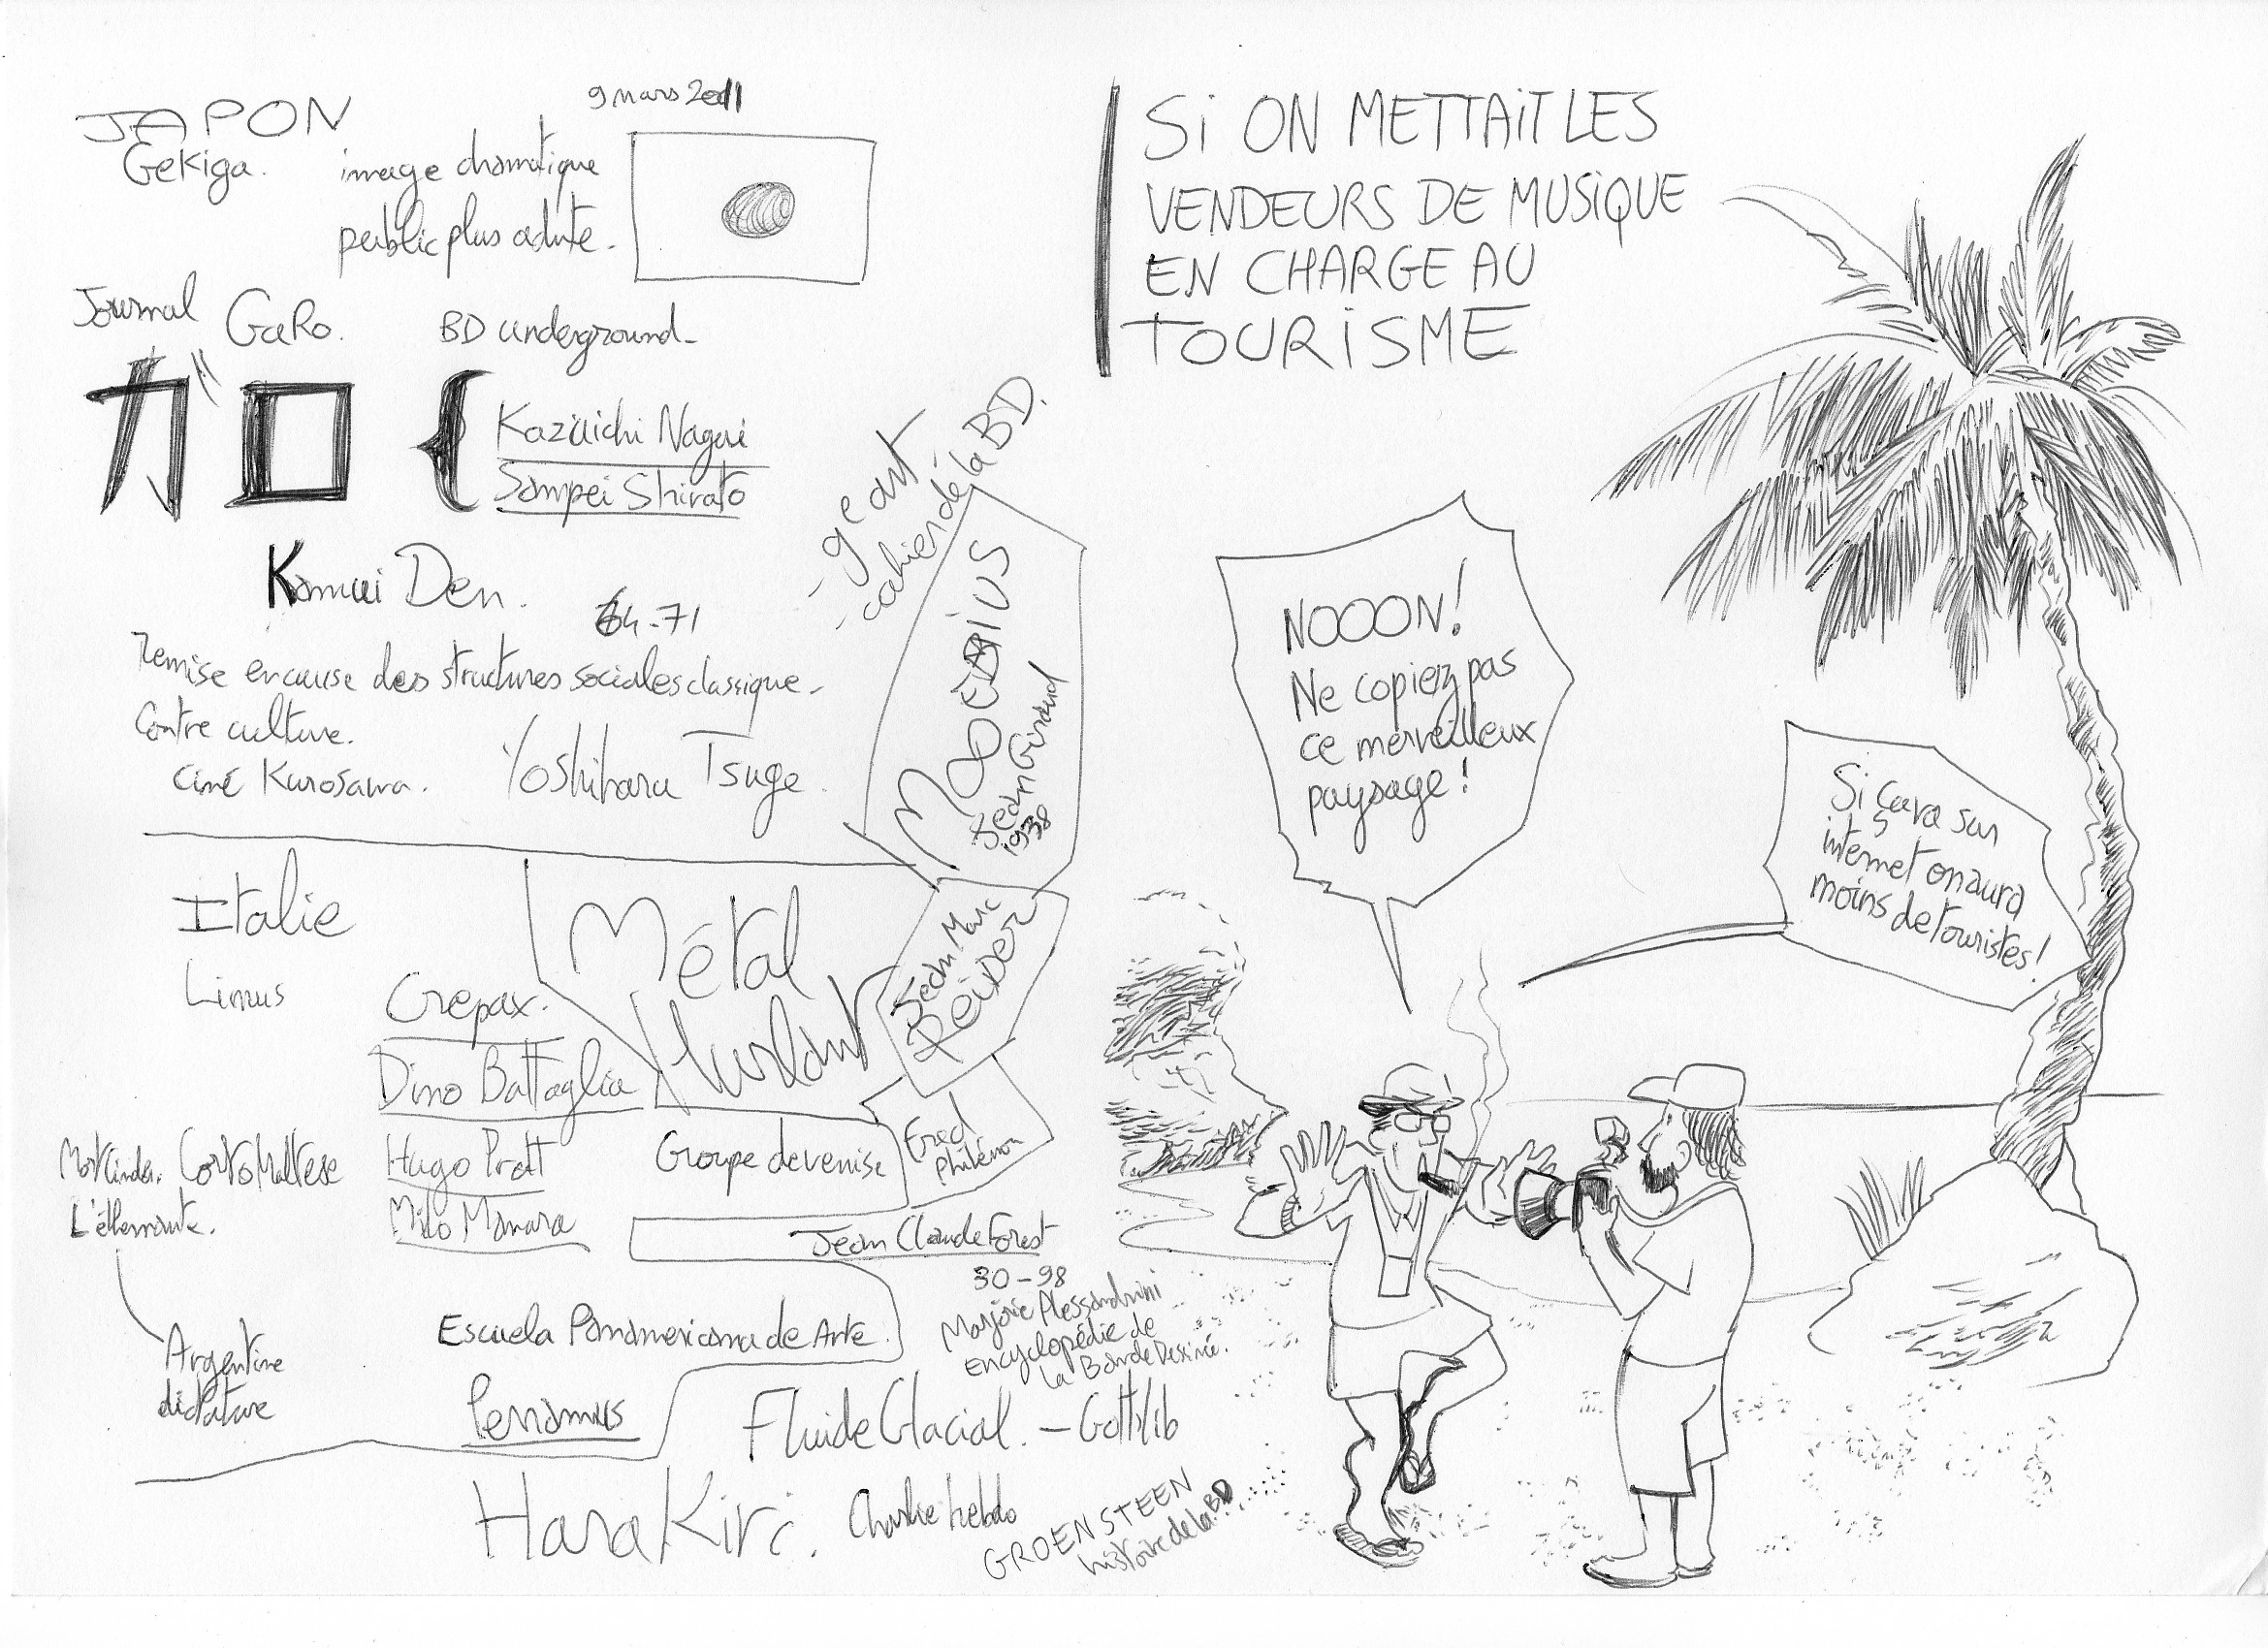 9 mars 2011
JAPON
Gekiga.
image dramatique
public plus adulte.
Journal GaRo.
BD underground
ガロ
Kazuichi Nagai
Sampei Shirato
Kamui Den.
64-71
Remise en cause des structures sociales classique.
Contre culture.
ciné Kurosawa.
Yoshiharu Tsuge.
- 9e art
- cahier de la BD.
MOEBIUS
Jean Giraud
1938
Italie
Linus
Métal
Hurlant
Jean Marc
REISER
Crepax.
Dino Battaglia
Hugo Pratt
Milo Manara
Groupe de venise
Fred
Philémon
Mort Cinder.
Corto Maltese
Jean Claude Forest
30-98
Marjorie Alessandrini
Encyclopédie de
la Bande Dessiné.
Escuela Panamericana de Arte
Argentine
dictature
Perramus
Fluide Glacial. - Gottlib
Hara Kiri.
Charlie hebdo
GROENSTEEN
histoire de la BD
Si ON METTAiT LES
VENDEURS DE MUSiQUE
EN CHARGE AU
TOURiSME
NOOON!
Ne copiez pas
ce merveilleux
paysage!
Si ça va sur
internet on aura
moins de touristes!